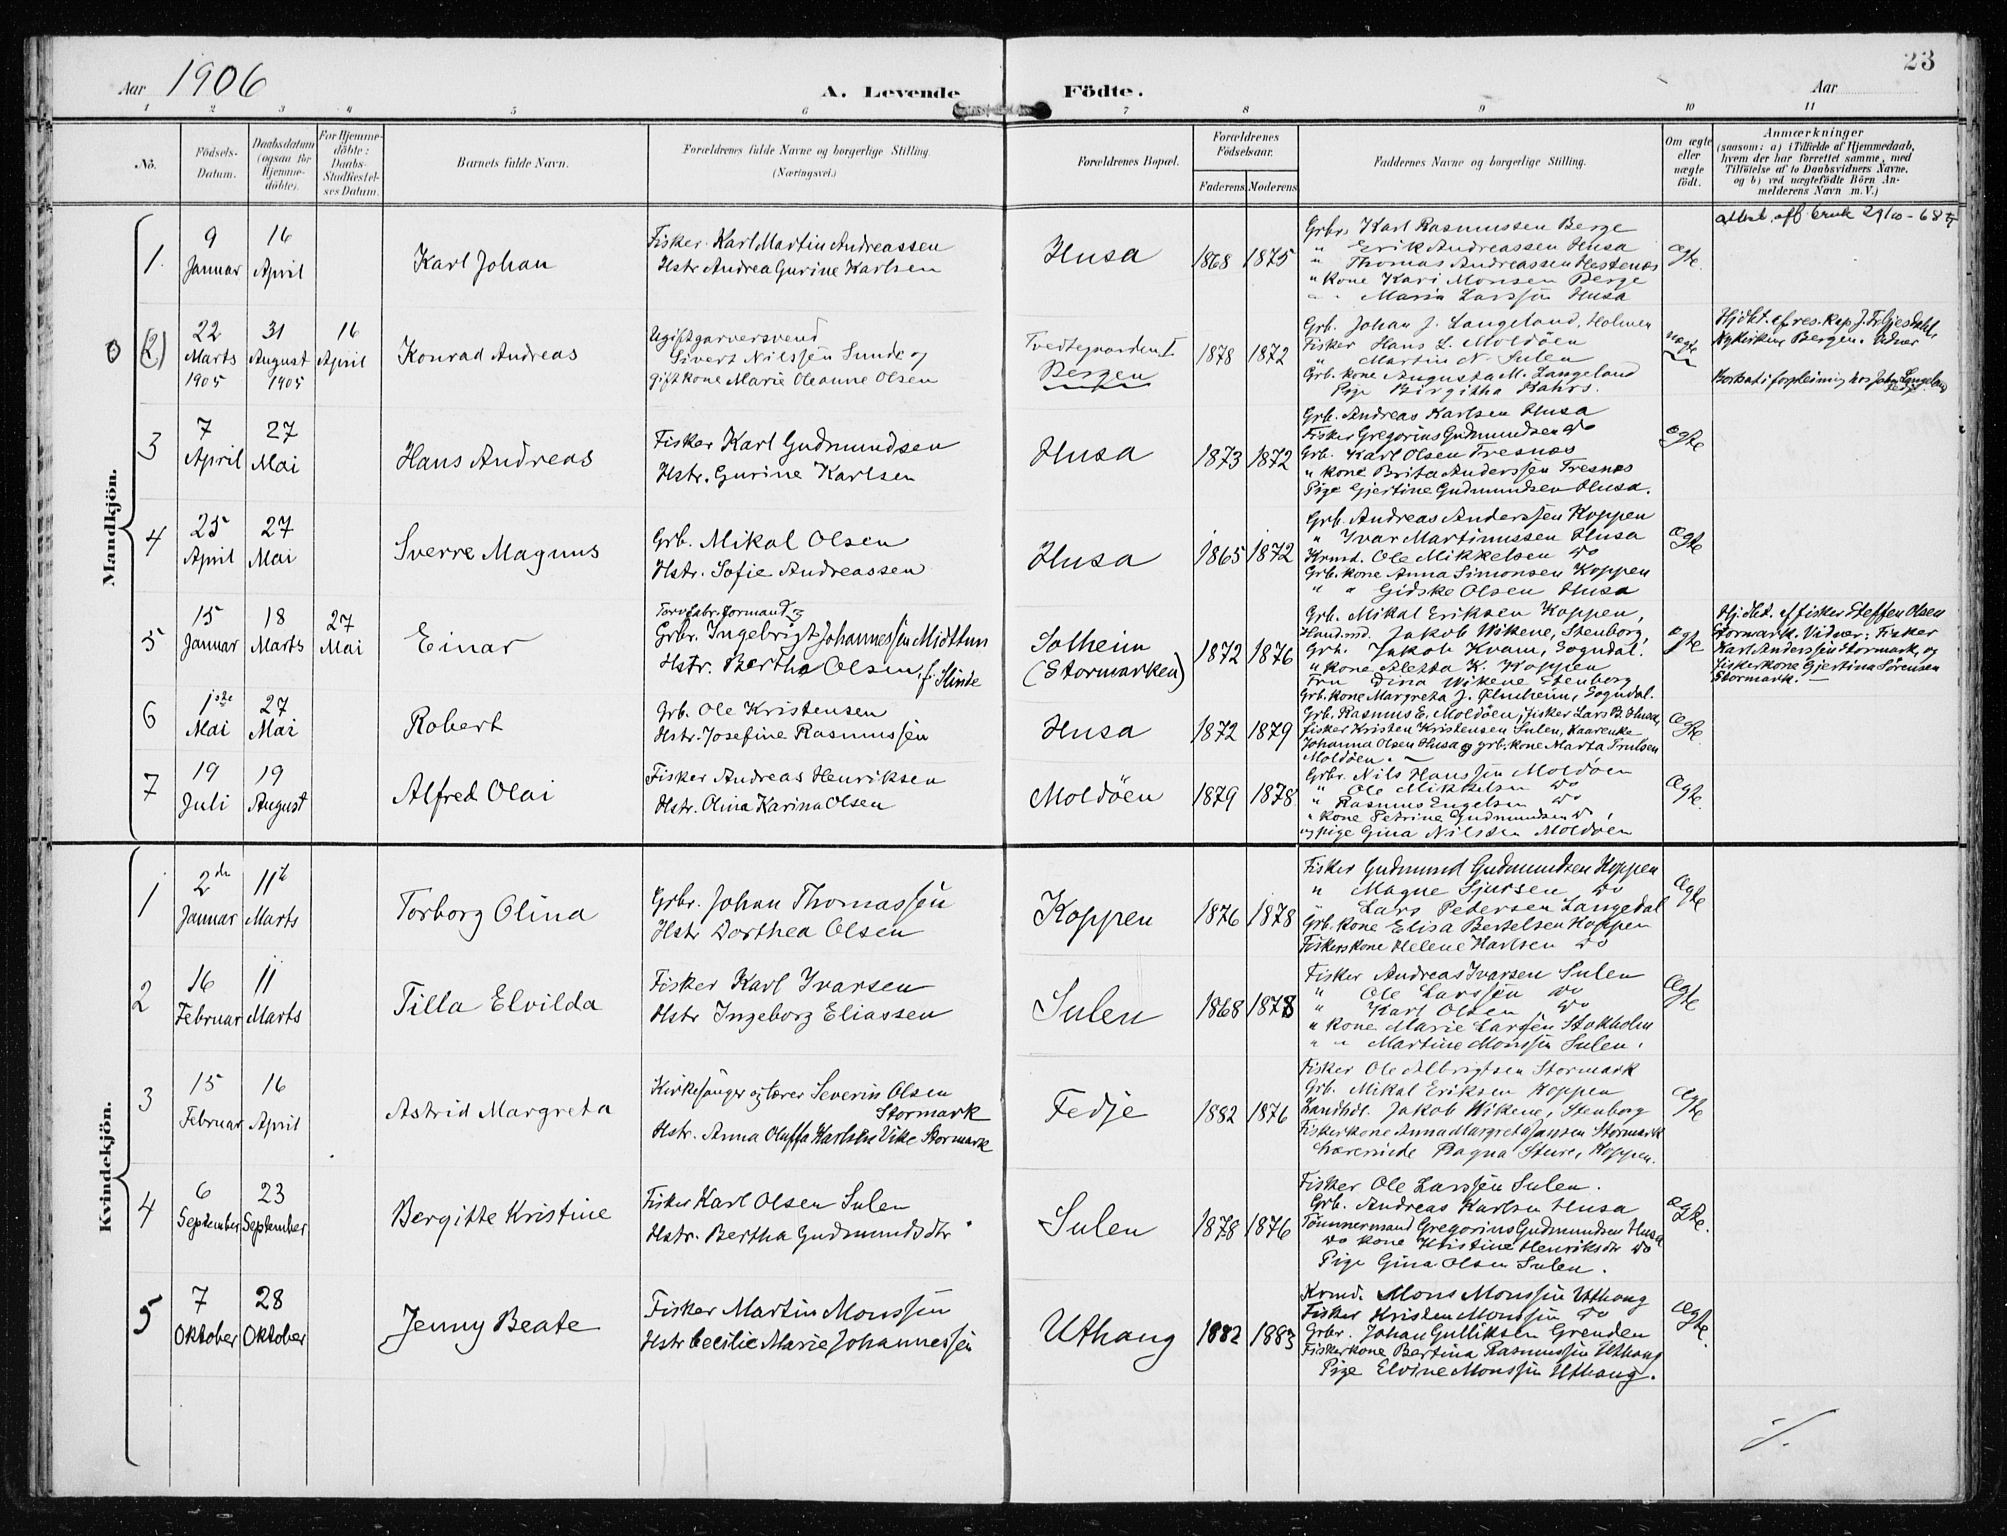 23
Aar 1906
A. Levende Födte.
Aar
1 2 3 4 5 6 7 8 9 10 11
No.
Födsels-Datum.
Daabsdatum (ogsaa for Hjemme-döbte).
For Hjemme-döbte: Daabs-Stadfæstel-ses Datum.
Barnets fulde Navn.
Forældrenes fulde Navne og borgerlige Stilling.
(Næringsvei.)
Forældrenes Bopæl.
Forældrenes Födselsaar.
Faderens Moderens
Faddernes Navne og borgerlige Stilling.
Om ægte eller uægte födt.
Anmærkninger
(saasom: a) i Tilfælde af Hjemmedaab,
hvem der har forrettet samme, med
Tilföielse af to Daabsvidners Navne,
og b) ved uægtefödte Börn An-
melderens Navn m. V.)
Mandkjön.
1.
9 Januar
16 April
Karl Johan
Fisker Karl Martin Andreassen
Hstr Andrea Gurine Karlsen
Husa
1868 1875
Grbr. Karl Rasmussen Berge
" Erik Andreassen Husa
" Thomas Andreassen Hestenæs
" kone Kari Monsen Berge
" " Maria Larssen Husa
ægte.
(2)
22 Marts 1905
31 August 1905
16 April
Konrad Andreas
Ugift garversvend
Sivert Nilssen Sunde og
gift kone Marie Oleanne Olsen
Tvedtegaarden I
Bergen
1878 1872
Grb. Johan J. Langeland, Holmen
Fisker Hans L. Moldöen
" Martin N. Sulen
Grb. kone Augusta M. Langeland
Pige Birgitha Kahrs.
uægte
Hjdbt. af res. kap. J. Tr. Gjesdahl,
Nykirken, Bergen.
Bortsat i forpleining hos Johan Langeland
3
7 April
27 Mai
Hans Andreas
Fisker Karl Gudmundsen
Hstr. Gurine Karlsen
Husa
1873 1872
Grb. Andreas Karlsen Husa
Fisker Gregorius Gudmundsen do
Grb. Karl Olsen Tresnæs
" kone Brita Anderssen Tresnæs
Pige Gjertine Gudmundsen Husa.
ægte
4
25 April
27 Mai
Sverre Magnus
Grb. Mikal Olsen
Hstr. Sofie Andreassen
Husa
1865 1872
Grb. Andreas Anderssen Koppen
" Ivar Martinussen Husa
Krmd. Ole Mikkelsen do
Grb. kone Anna Simonsen Koppen
" " Gidske Olsen Husa
ægte
5
15 Januar
18 Marts
27 Mai
Einar
Torvfabr. formand og
Grbr. Ingebrigt Johannessen Midttun
Hstr. Bertha Olsen, f. Slinde
Solheim
(Stormarken)
1872 1876
Grb. Mikal Eriksen Koppen,
Handmd. Jakob Wikene, Stenborg,
Grb. Jakob Kvam, Sogndal.
" kone Aletta K. Koppen
Fru Dina Wikene Stenborg
Grb. kone Margreta J. Ølmheim, Sogndal.
ægte
Hjdbt. af fisker Steffen Olsen
Stormark. Vidner: Fisker
Karl Anderssen Stormark, og
fiskerkone Gjertina Sörensen
Stormark. —
6
1ste Mai
27 Mai
Robert
Grb. Ole Kristensen
Hstr. Josefine Rasmussen
Husa
1872 1879
Grb. Rasmus E. Moldöen, fisker Lars B. Husa,
fisker Kristen Kristensen Sulen, kaarenke
Johanna Olsen Husa og grb. kone Marta Trulsen
Moldöen. —
ægte.
7
19 Juli
19 August
Alfred Olai
Fisker Andreas Henriksen
Hstr. Olina Karina Olsen
Moldöen
1879 1878
Grbr. Nils Hanssen Moldöen
" Ole Mikkelsen do
" Rasmus Engelsen do
" kone Petrine Gudmundsen do,
og pige Gina Nilssen Moldöen
ægte.
Kvindekjön.
1
2den Januar
11te Marts
Torborg Olina
Grbr. Johan Thomassen
Hstr Dorthea Olsen
Koppen
1876 1878
Fisker Gudmund Gudmundsen Koppen
" Magne Sjursen do
" Lars Petersen Langedal
Grb. kone Elisa Bertelsen Koppen
Fiskerskone Helene Karlsen do
ægte
2
16 Februar
11 Marts
Tilla Elvilda
Fisker Karl Ivarsen
Hstr Ingeborg Eliassen
Sulen
1868 1878
Fisker Andreas Ivarsen Sulen
" Ole Larssen do
" Karl Olsen do
" kone Marie Larsen Stokholm
" " Martine Monssen Sulen.
ægte
3
15 Februar
16 April
Astrid Margreta
Kirkesanger og lærer Severin Olsen
Stormark
Hstr. Anna Oluffa Karlsen Vike Stormark
Fedje
1882 1876
Fisker Ole Albrigtsen Stormark
Grb. Mikal Eriksen Koppen
Handhdl. Jakob Wikene, Stenborg
Fiskerkone Anna Margreta Jansen Stormark
Lærerinde Ragna Sture, Koppen.
ægte
4
6 September
23 September
Bergitte Kristine
Fisker Karl Olsen Sulen
Hstr. Bertha Gudmundsdtr
Sulen
1878 1876
Fisker Ole Larssen Sulen.
Grb. Andreas Karlsen Husa
Tömmermand Gregorius Gudmundsen Husa
do kone Kristine Henriksdtr do
Pige Gina Olsen Sulen.
ægte.
5
7 Oktober
28 Oktober
Jenny Beate
Fisker Martin Monssen
Hstr Cecilie Marie Johannessen
Uthaug
1882 1883
Krmd. Mons Monssen Uthaug
Fisker Kristen Monssen do
Grbr. Johan Gulliksen Grenden
Fiskerkone Bertina Rasmussen Uthaug
Pige Elvine Monssen Uthaug.
ægte.